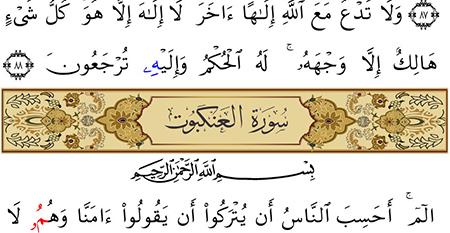 ﴿٨٧﴾ وَلَا تَدْعُ مَعَ اللَّهِ إِلَـٰهًا ءَاخَرَ لَا إِلَـٰهَ إِلَّا هُوَ كُلُّ شَىْءٍ
هَالِكٌ إِلَّا وَجْهَهُۥ ۚ لَهُ الْحُكْمُ وَإِلَيْهِۦ تُرْجَعُونَ ﴿٨٨﴾
سُورَةُ الْعَنكَبُوت
بِسْمِ اللَّهِ الرَّحْمَـٰنِ الرَّحِيمِ
الٓمٓ ۚ أَحَسِبَ النَّاسُ أَن يُتْرَكُوا۟ أَن يَقُولُوا۟ ءَامَنَّا وَهُمُۥ لَا